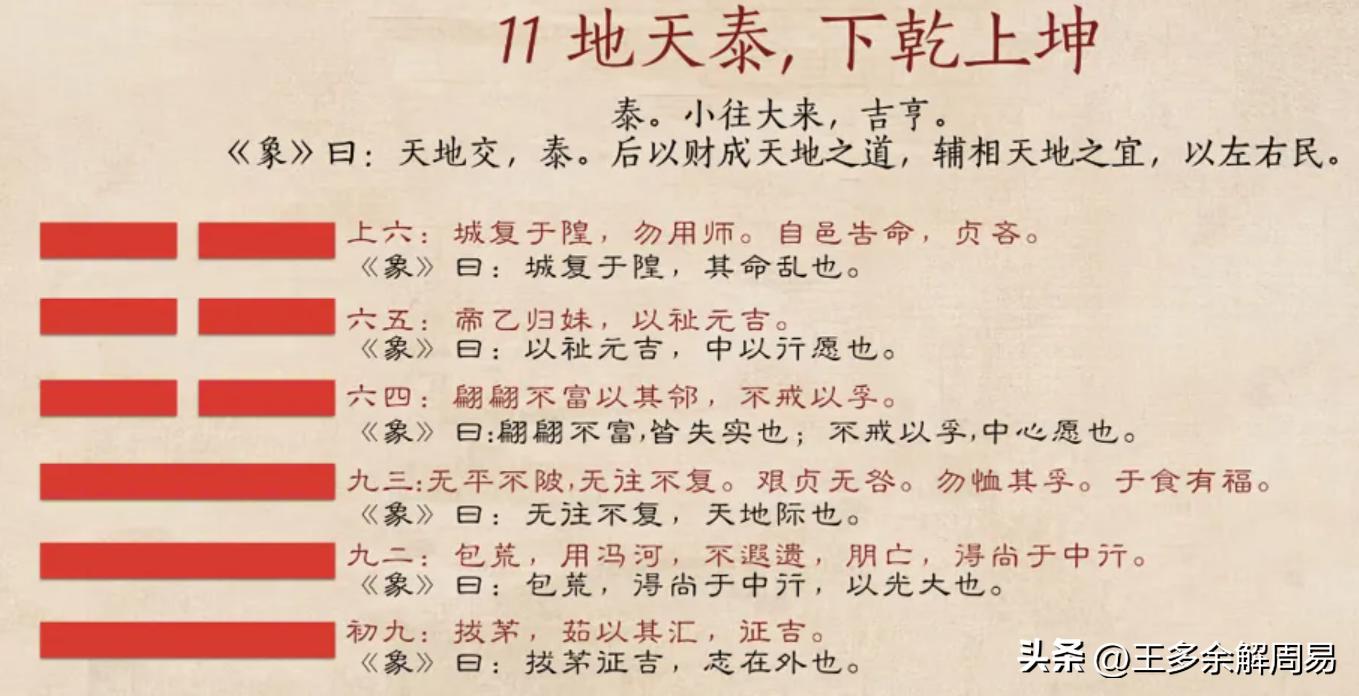 11 地天泰, 下乾上坤
泰。小往大来，吉亨。
《象》曰：天地交，泰。后以财成天地之道，辅相天地之宜，以左右民。
上六：城复于隍，勿用师。自邑告命，贞吝。
《象》曰：城复于隍，其命乱也。
六五：帝乙归妹，以祉元吉。
《象》曰：以祉元吉，中以行愿也。
六四：翩翩不富以其邻，不戒以孚。
《象》曰:翩翩不富,皆失实也；不戒以孚,中心愿也。
九三:无平不陂,无往不复。艰贞无咎。勿恤其孚。于食有福。
《象》曰：无往不复，天地际也。
九二：包荒，用冯河，不遐遗，朋亡，得尚于中行。
《象》曰：包荒，得尚于中行，以光大也。
初九：拔茅，茹以其汇，征吉。
《象》曰：拔茅征吉，志在外也。
头条 @王多余解周易